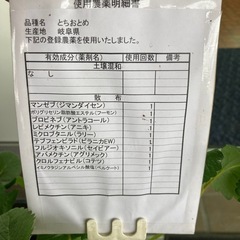 使用農薬明細書
品種名 とちおとめ
生産地 岐阜県
下記の登録農薬を使用いたしました。
有効成分(薬剤名) 使用回数 備考
土壌混和
なし
散布
マンゼブ(ジマンダイセン) 1
ポリグリセリン脂肪酸エステル(フーモン) 1
プロピネブ(アントラコール) 1
レピメクチン(アニキ) 1
ミクロブタニル(ラリー) 1
テブフェンピラド(ピラニカEW) 1
フルジオキソニル(セイビアー) 1
アバメクチン(アグリメック) 1
クロルフェナピル(コテツ) 1
イミノクタジンアルベシル酸塩(ベルクート) 1